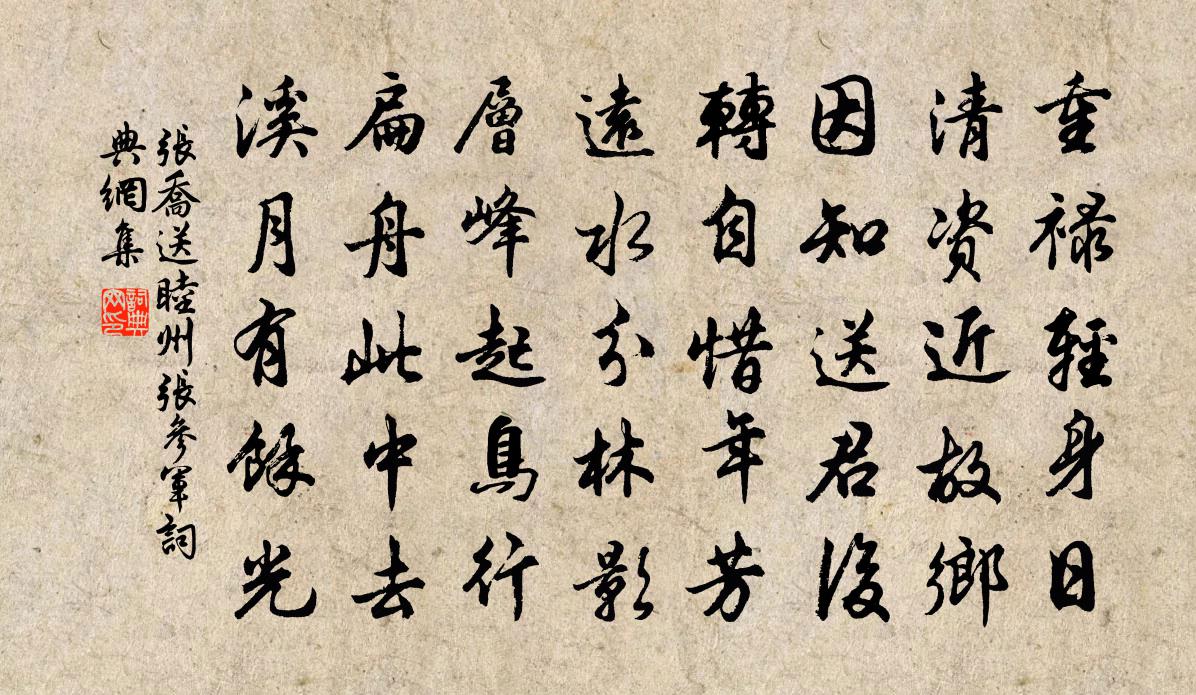 重禄輕身日
清資近故鄉
因知送君後
轉自惜年芳
遠水分林影
層峰起鳥行
扁舟此中去
溪月有餘光
張喬送睦州張參軍詞
典網集
詞典
网印